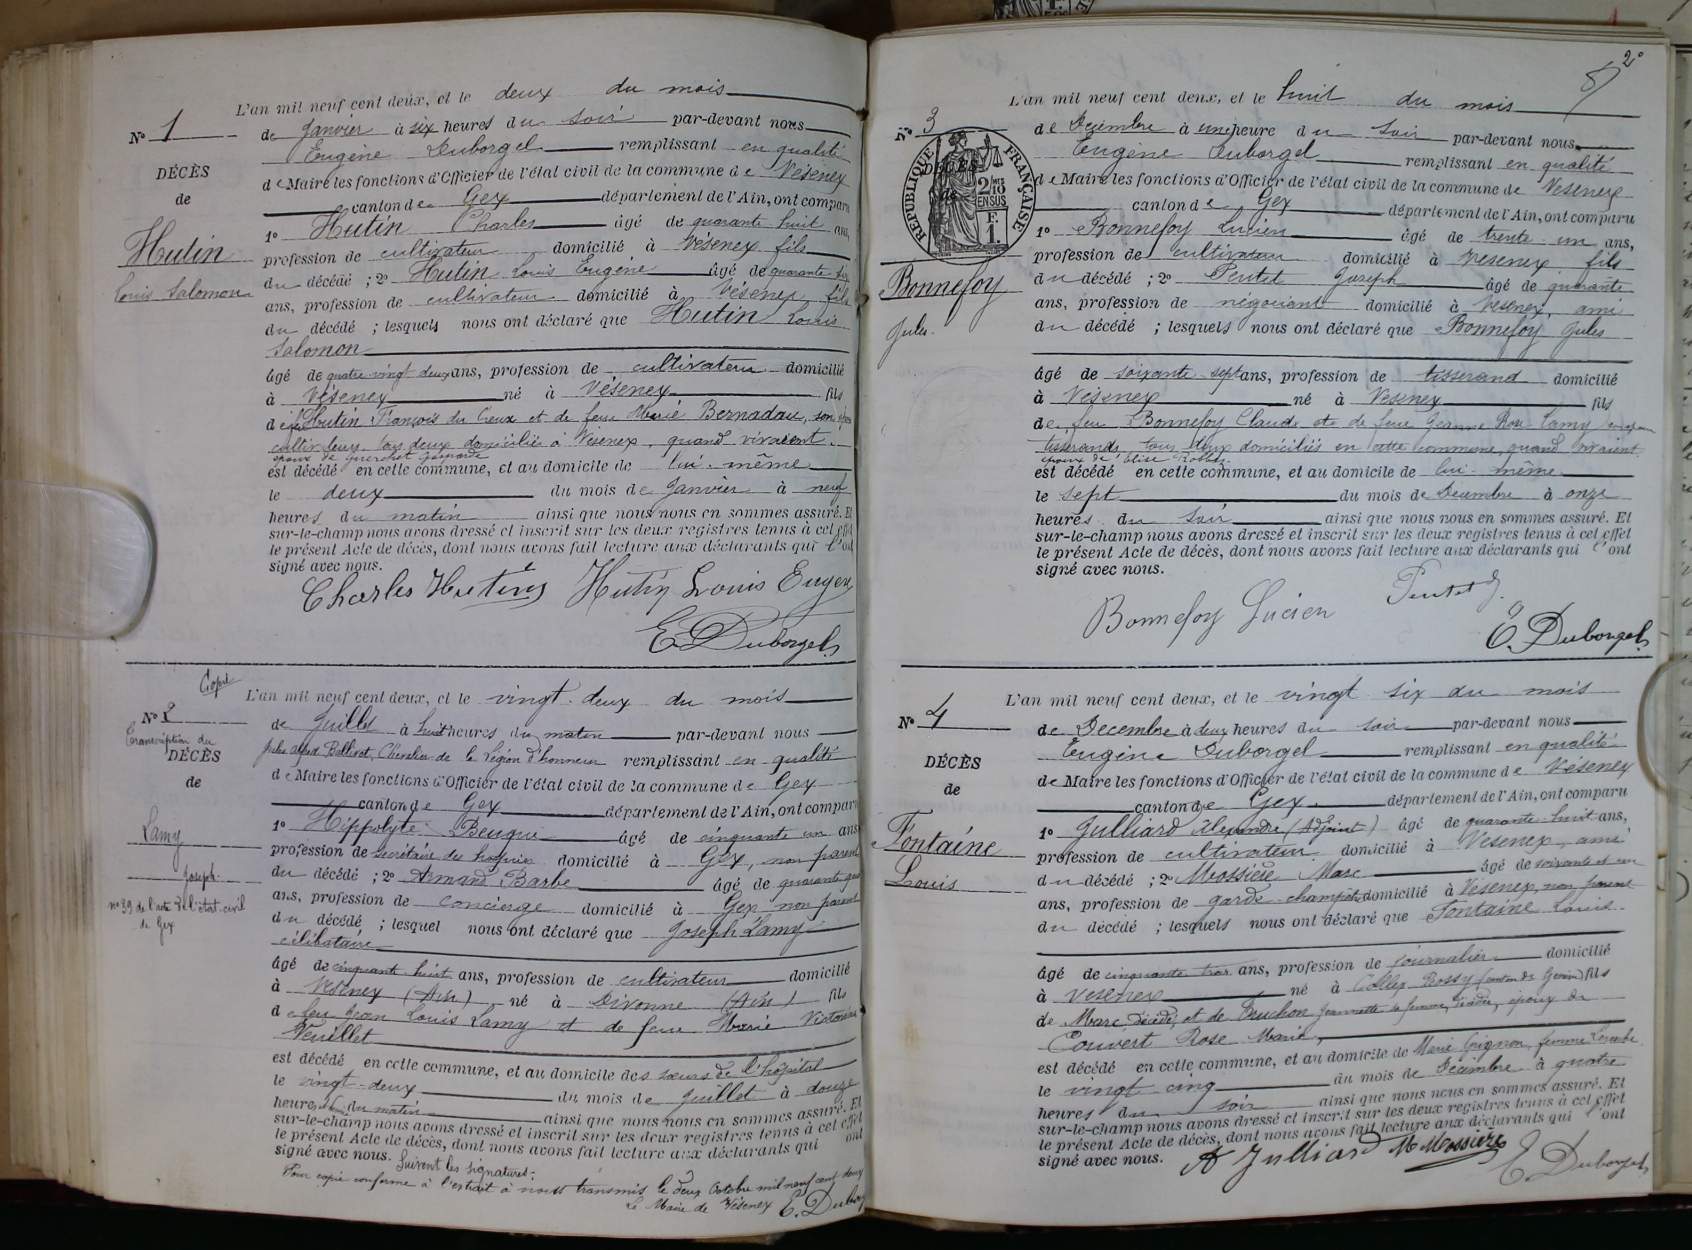 N° 1
DÉCÈS
de
Hutin
Louis Salomon
L'an mil neuf cent deux, et le deux du mois
de Janvier à six heures du soir par-devant nous
Eugène Duborgel remplissant en qualité
de Maire les fonctions d'Officier de l'état civil de la commune de Vésenex
canton de Gex département de l'Ain, ont comparu
1° Hutin Charles âgé de quarante huit ans,
profession de cultivateur domicilié à Vésenex fils
du décédé ; 2° Hutin Louis Eugène âgé de quarante
ans, profession de cultivateur domicilié à Vésenex, fils
du décédé ; lesquels nous ont déclaré que Hutin Louis
Salomon
âgé de quatre vingt deux ans, profession de cultivateur domicilié
à Vésenex né à Vésenex fils
de Hutin François du Creux et de feue Marie Bernadau, son
cultivateurs tous deux domiciliés à Vésenex, quand vivaient.
époux de
est décédé en cette commune, et au domicile de lui-même
le deux du mois de Janvier à neuf
heures du matin ainsi que nous nous en sommes assuré. Et
sur-le-champ nous avons dressé et inscrit sur les deux registres tenus à cet effet
le présent Acte de décès, dont nous avons fait lecture aux déclarants qui l'ont
signé avec nous.
Charles Hutin Hutin Louis Eugen
E. Duborgel
Copie
N° 2
Transcription du
DÉCÈS
de
Lamy
Joseph
n° 39 de l'acte de l'état-civil
de Gex
L'an mil neuf cent deux, et le vingt-deux du mois
de Juillet à huit heures du matin par-devant nous
Jules Alfred Chevalier de la Légion d'honneur remplissant en qualité
de Maire les fonctions d'Officier de l'état civil de la commune de Gex
canton de Gex département de l'Ain, ont comparu
1° Hippolyte Beugui âgé de cinquante un ans
profession de secrétaire des hospices domicilié à Gex, non parent
du décédé ; 2° Armand Barbe âgé de quarante
ans, profession de concierge domicilié à Gex non parent
du décédé ; lesquel nous ont déclaré que Joseph Lamy
célibataire
âgé de cinquant huit ans, profession de cultivateur domicilié
à Vésenex (Ain) né à Divonne (Ain) fils
de feu Jean Louis Lamy et de feue Marie Victorine
Veuillet
est décédé en cette commune, et au domicile des sœurs de l'hôpital
le vingt-deux du mois de Juillet à douze
heures du matin ainsi que nous nous en sommes assuré. Et
sur-le-champ nous avons dressé et inscrit sur les deux registres tenus à cet effet
le présent Acte de décès, dont nous avons fait lecture aux déclarants qui ont
signé avec nous. Suivent les signatures:
Pour copie conforme à l'extrait à nous transmis le deux Octobre mil neuf cent deux
Le Maire de Vésenex E. Dubor
2°
N° 3
RÉPUBLIQUE FRANÇAISE
2/10 EN SUS
F. 1
DÉCÈS
de
Bonnefoy
Jules.
L'an mil neuf cent deux, et le huit du mois
de Décembre à une heure du soir par-devant nous
Eugène Duborgel remplissant en qualité
de Maire les fonctions d'Officier de l'état civil de la commune de Vesenex
canton de Gex département de l'Ain, ont comparu
1° Bonnefoy Lucien âgé de trente un ans,
profession de cultivateur domicilié à Vesenex fils
du décédé ; 2° Pentet Joseph âgé de quarante
ans, profession de négociant domicilié à Vesenex, ami
du décédé ; lesquels nous ont déclaré que Bonnefoy Jules
âgé de soixante sept ans, profession de tisserand domicilié
à Vésenex né à Vésenex fils
de feu Bonnefoy Claude et de feue Jeanne Rose Lamy
tisserands tous deux domiciliés en cette commune, quand vivaient
époux de Elise
est décédé en cette commune, et au domicile de lui-même
le sept du mois de Décembre à onze
heures du soir ainsi que nous nous en sommes assuré. Et
sur-le-champ nous avons dressé et inscrit sur les deux registres tenus à cet effet
le présent Acte de décès, dont nous avons fait lecture aux déclarants qui l'ont
signé avec nous.
Bonnefoy Lucien Pentet J.
E. Duborgel
N° 4
DÉCÈS
de
Fontaine
Louis
L'an mil neuf cent deux, et le vingt six du mois
de Décembre à deux heures du soir par-devant nous
Eugène Duborgel remplissant en qualité
de Maire les fonctions d'Officier de l'état civil de la commune de Vésenex
canton de Gex département de l'Ain, ont comparu
1° Julliard Alexandre (Adjoint) âgé de quarante-huit ans,
profession de cultivateur domicilié à Vesenex, ami
du décédé ; 2° Mossière Marc âgé de soixante et un
ans, profession de garde-champêtre domicilié à Vésenex, non parent
du décédé ; lesquels nous ont déclaré que Fontaine Louis
âgé de cinquante trois ans, profession de journalier domicilié
à Vesenex né à Collex Bossy (canton de Genève) fils
de Marc, décédé, et de Truchon Jeannette sa femme, décédée, époux de
Couvert Rose Marie,
est décédé en cette commune, et au domicile de Marie Grignon, femme
le vingt cinq du mois de Décembre à quatre
heures du soir ainsi que nous nous en sommes assuré. Et
sur-le-champ nous avons dressé et inscrit sur les deux registres tenus à cet effet
le présent Acte de décès, dont nous avons fait lecture aux déclarants qui l'ont
signé avec nous. A Julliard M Mossière
E. Duborgel